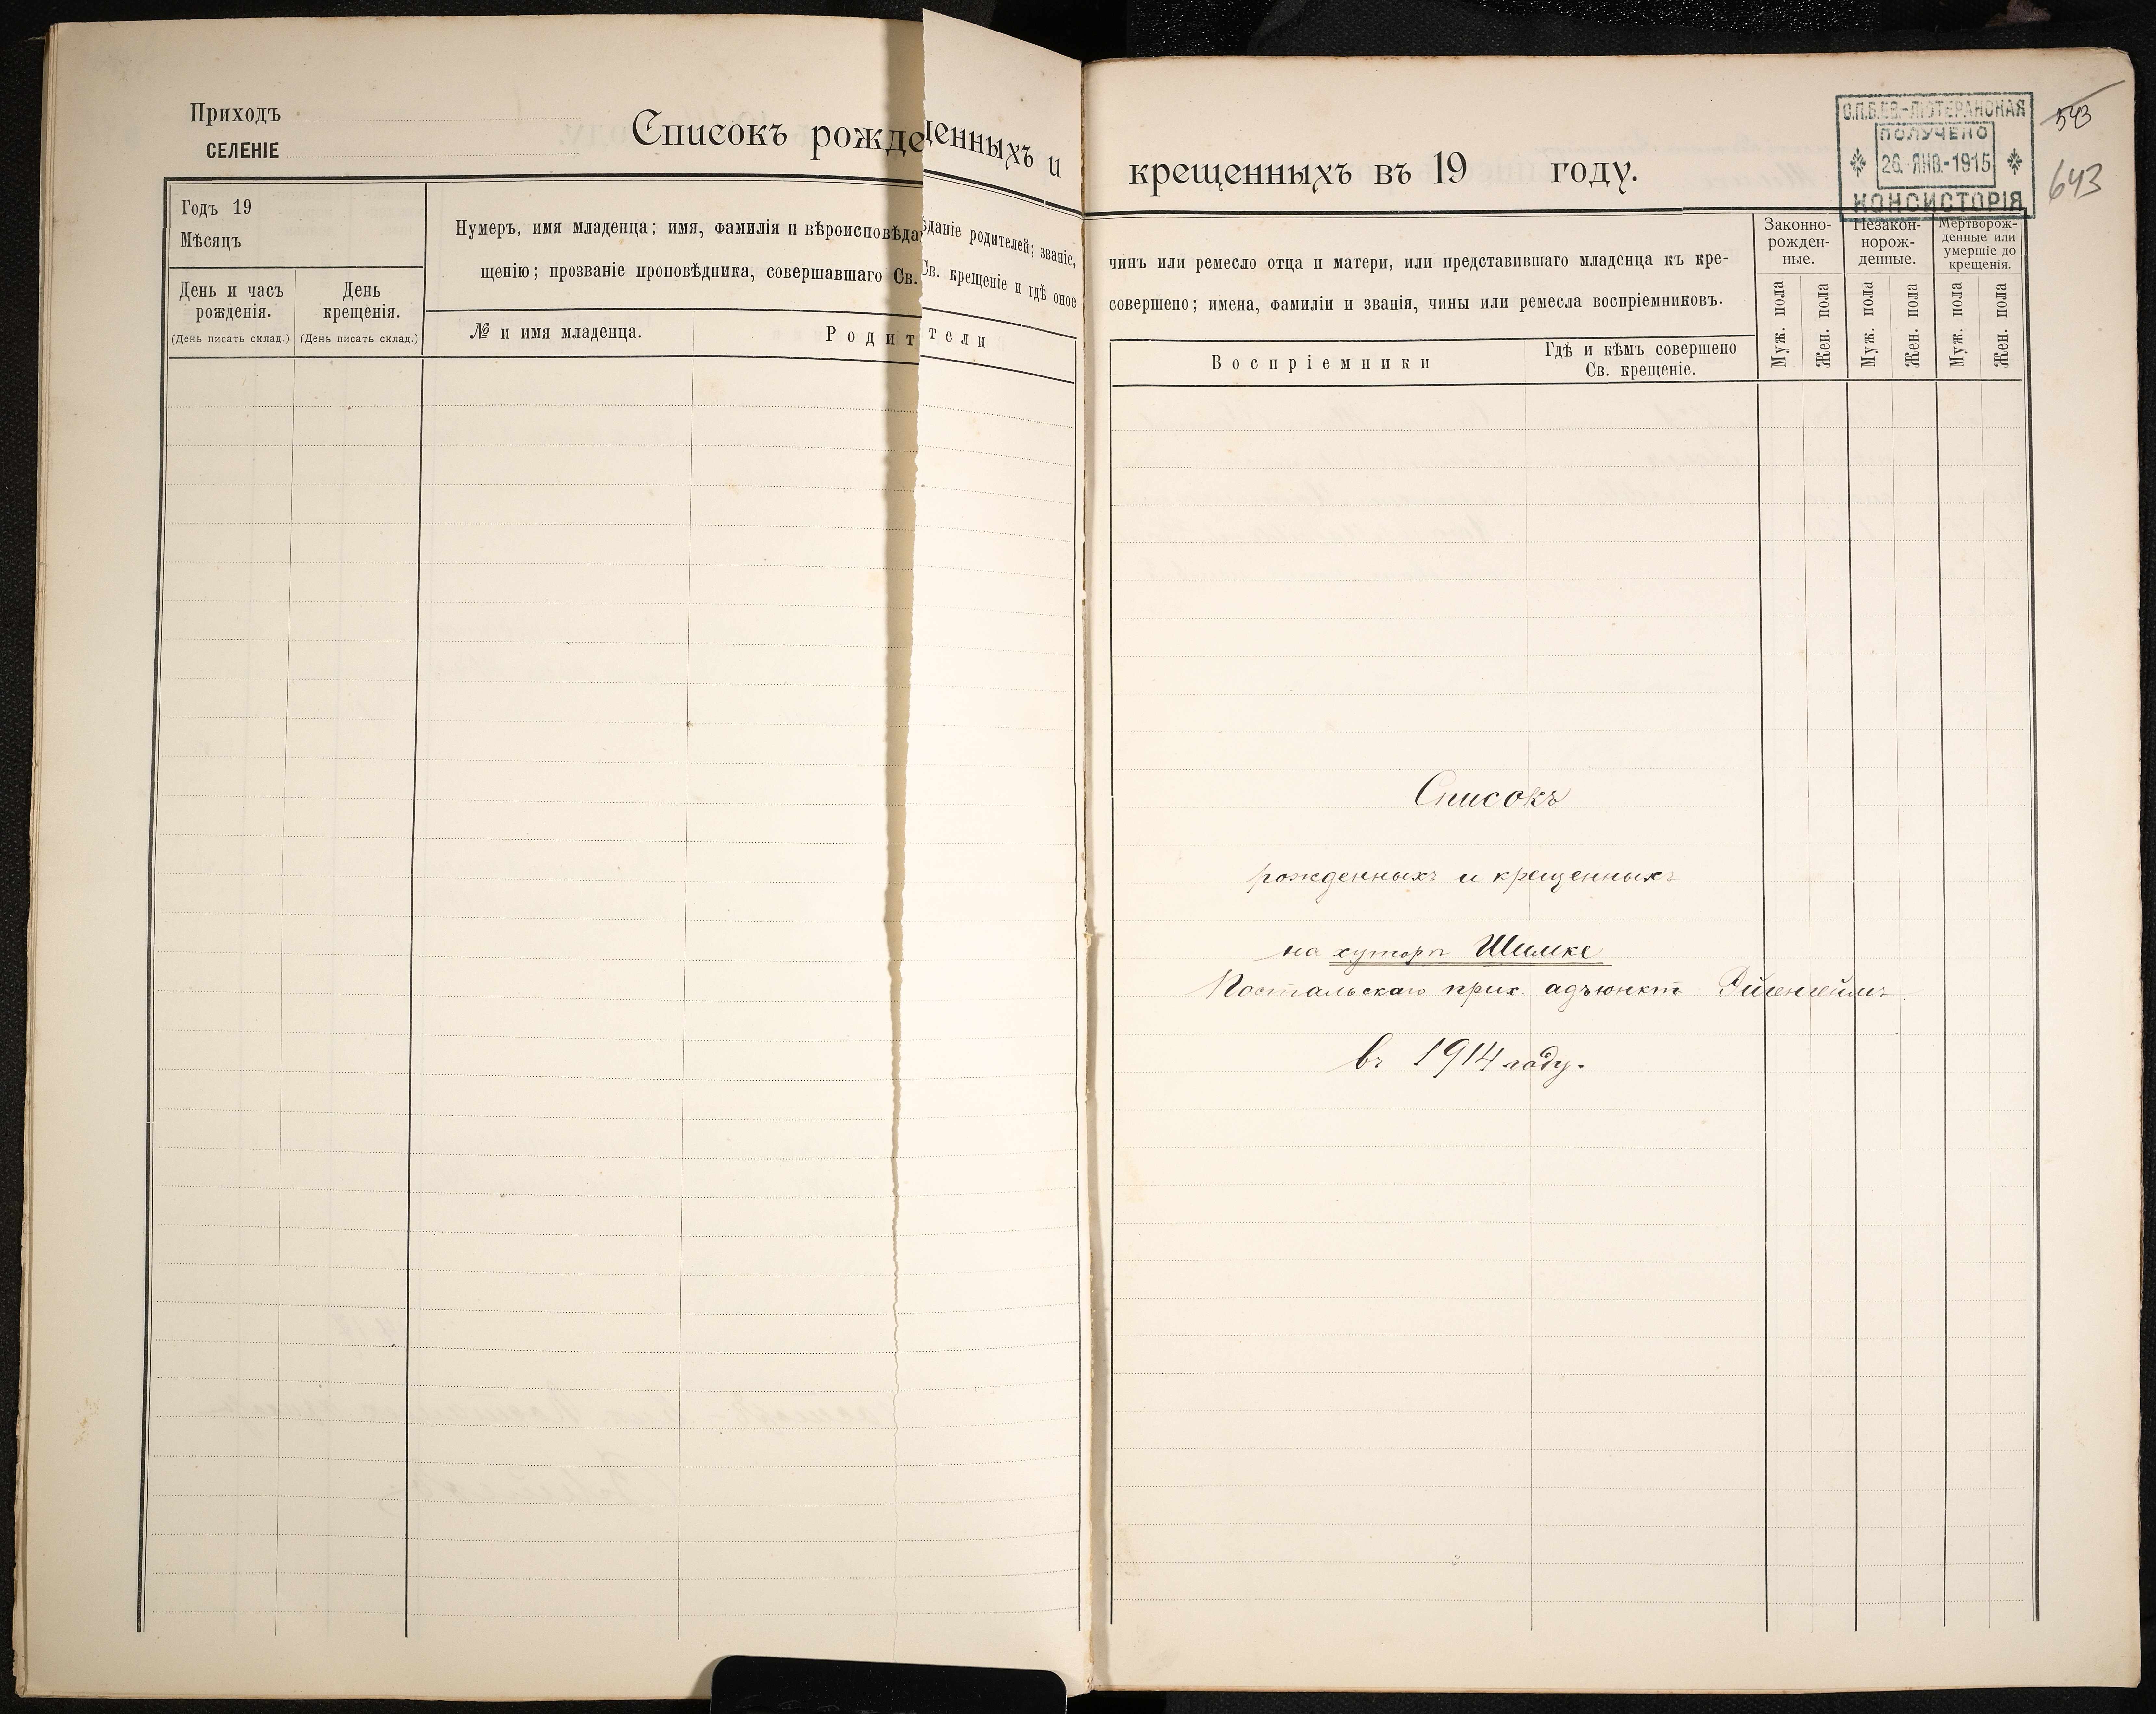 Приходъ
СЕЛЕНІЕ
Списокъ рожде
денныхъ и
Годъ 19
Мѣсяцъ
День и часъ
рожденія.
(День писать склад.)
День
крещенія.
(День писать склад.)
Нумеръ, имя младенца; имя, фамилія и вѣроисповѣда
ѣданіе родителей; званіе,
щенію; прозваніе проповѣдника, совершавшаго Св.
Св. крещеніе и гдѣ оное
№ и имя младенца.
Родит
тели
крещенныхъ въ 19 году.
С.П.Б.ЕВ.-ЛЮТЕРАНСКАЯ
ПОЛУЧЕНО
26.ЯНВ.-1915
КОНСИСТОРІЯ
543
643
чинъ или ремесло отца и матери, или представившаго младенца къ кре-
совершено; имена, фамиліи и званія, чины или ремесла воспріемниковъ.
Воспріемники
Гдѣ и кѣмъ совершено
Св. крещеніе.
Законно-
рожден-
ные.
Незакон-
норож-
денные.
Мертворож-
денные или
умершіе до
крещенія.
Муж. пола
Жен. пола
Муж. пола
Жен. пола
Муж. пола
Жен. пола
Списокъ
рожденныхъ и крещенныхъ
на хуторѣ Шимке
прих. адъюнкт
въ 1914 году.